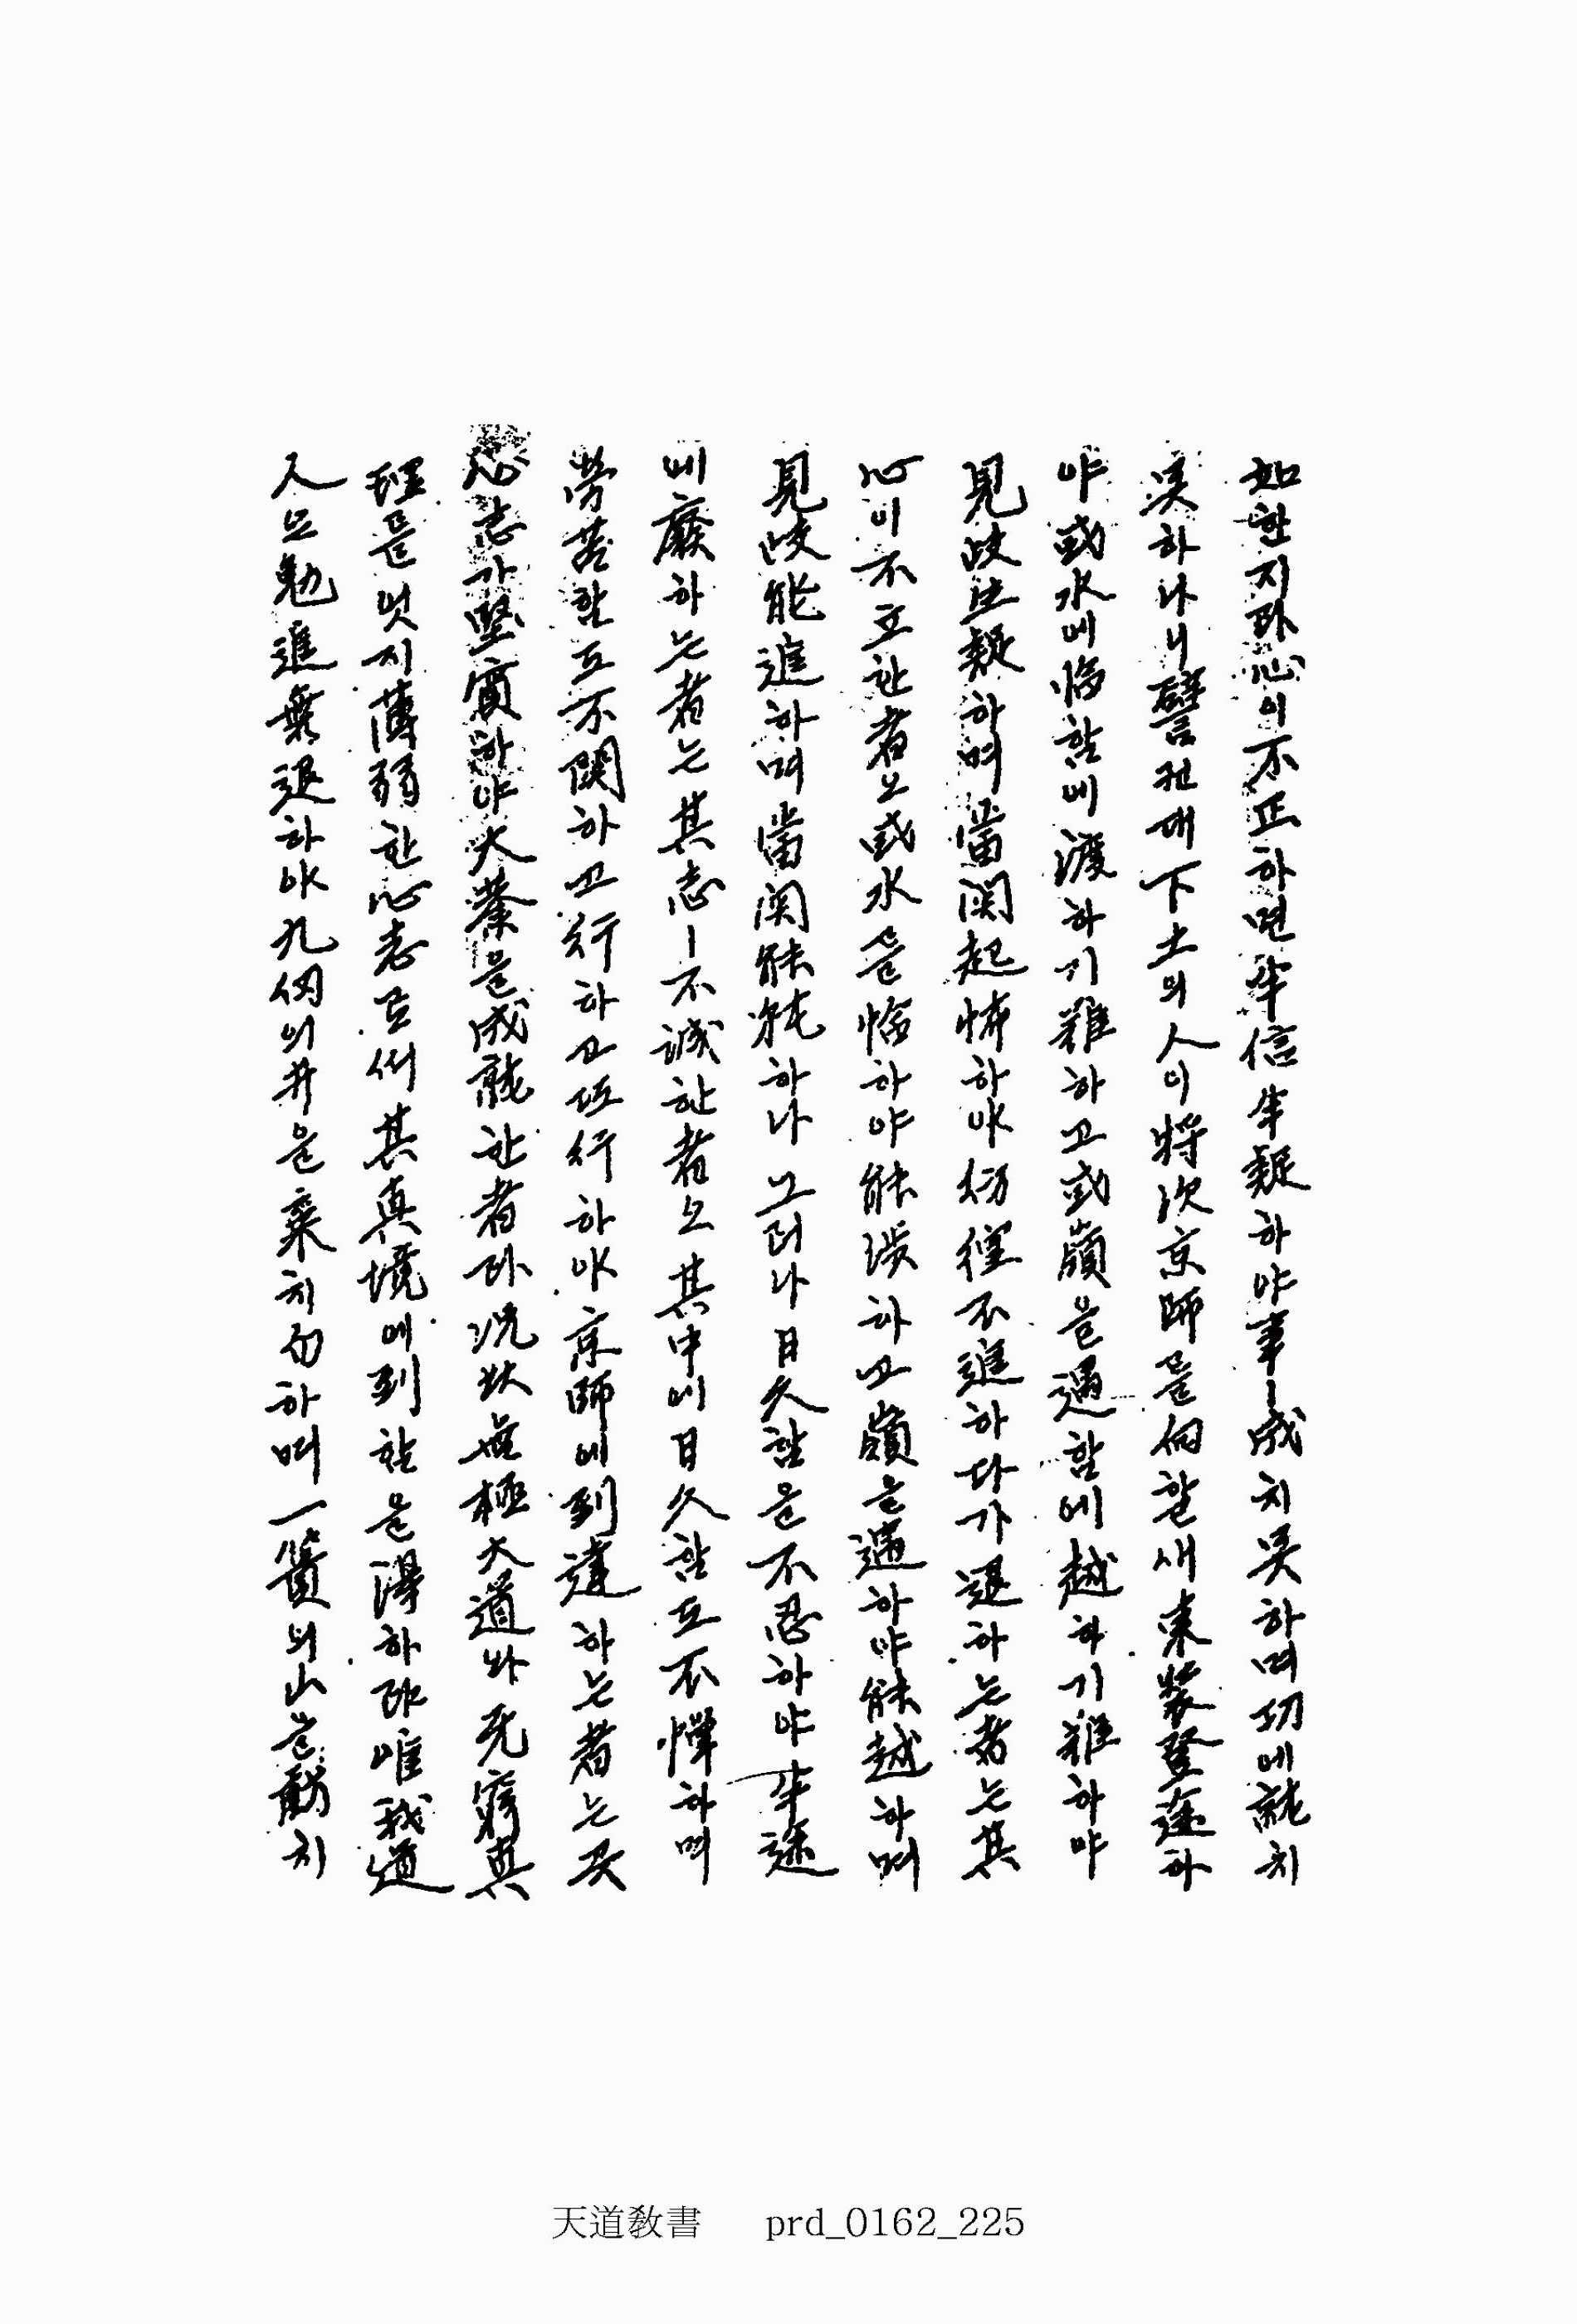 如한지라心이不正하면半信半疑하야事ㅣ成치못하며功에就치
못하나니譬컨대下土의人이將次京師를向할새束裝登途하
야或水에臨함에渡하기難하고或嶺을遇함에越하기難하야
見岐生疑하며當関起悑하야彷徨不進하다가退하는者는其
心이不立한者오或水를臨하야能涉하고嶺을遇하야能越하며
見岐能進하며當関能就하나그러나日久함을不忍하야半途
에廢하는者는其志ㅣ不誠한者오其中에日久함도不憚하며
勞苦함도不関하고行하고또行하야京師에到達하는者는곳
心志가堅實하야大業을成就한者라況此無極大道와无窮眞
理를엇지薄弱한心志로써其眞境에到함을得하랴唯我道
人은勉進無退하야九仞의井을棄치勿하며一簣의山을虧치
天道敎書 prd_0162_225